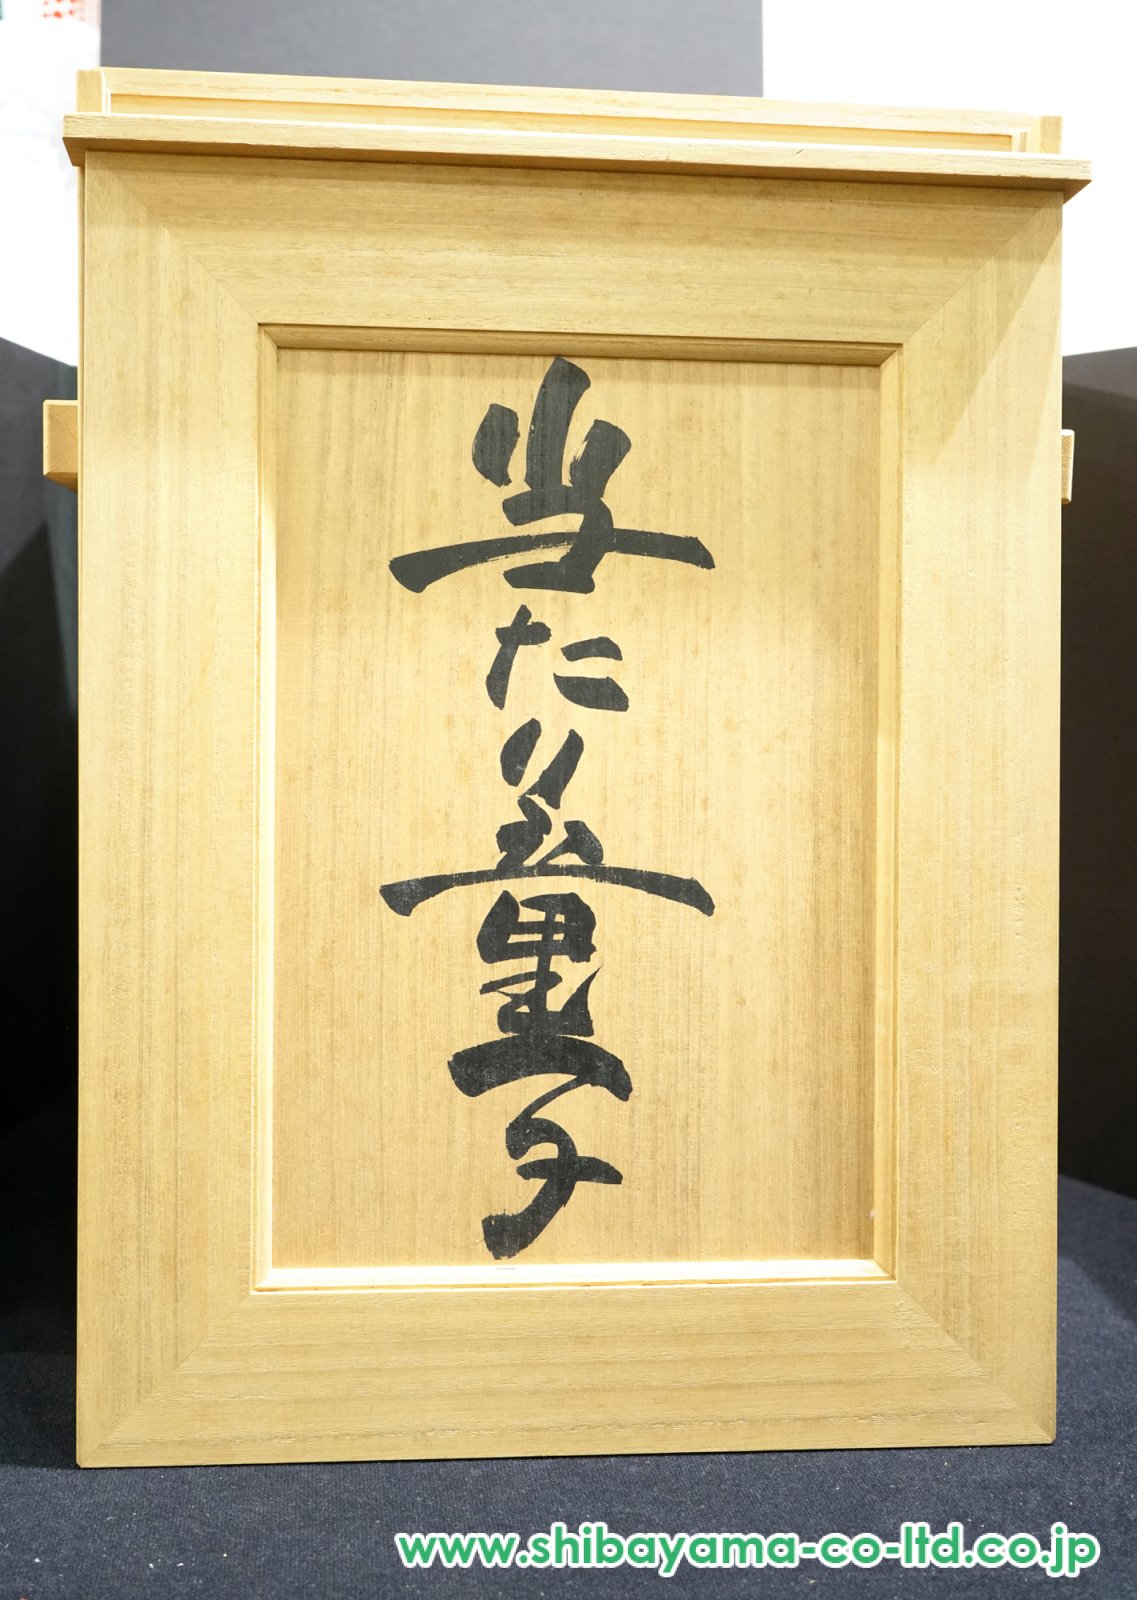 当たり童子
www.shibayama-co-ltd.co.jp